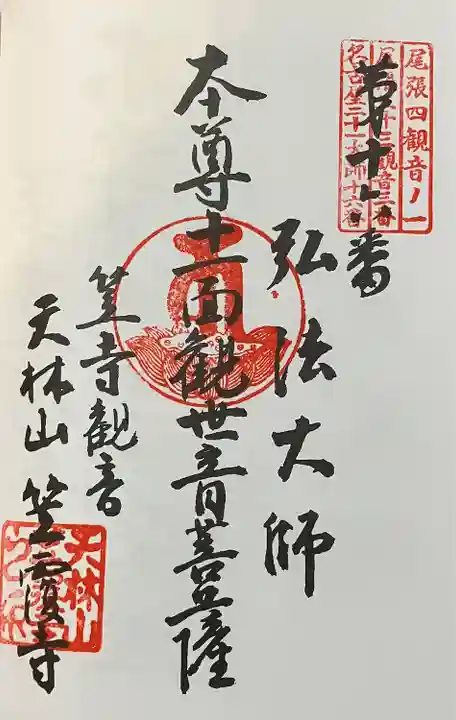 尾張四観音ノ一
尾張三十三観音三番
名古屋二十一大師十六番
第十六番
弘法大師
本尊十一面観世音菩薩
笠寺観音
天林山 笠覆寺
天林山